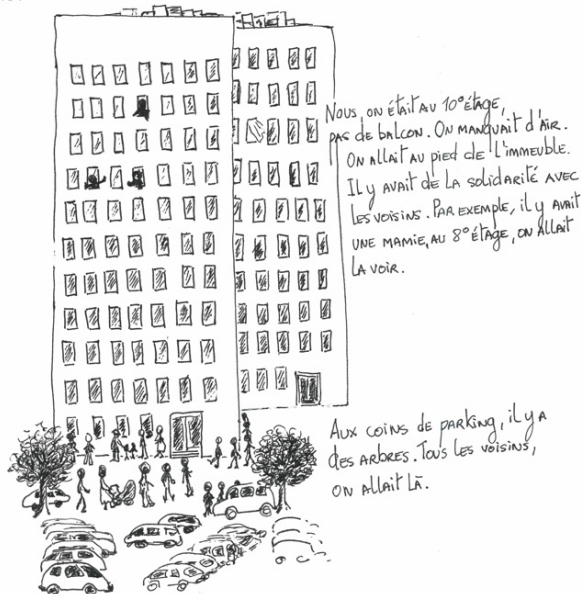 Nous, on était au 10° étage,
pas de balcon. On manquait d'air.
On allait au pied de l'immeuble.
Il y avait de la solidarité avec
les voisins. Par exemple, il y avait
une mamie, au 8° étage, on allait
la voir.
Aux coins de parking, il y a
des arbres. Tous les voisins,
on allait là.